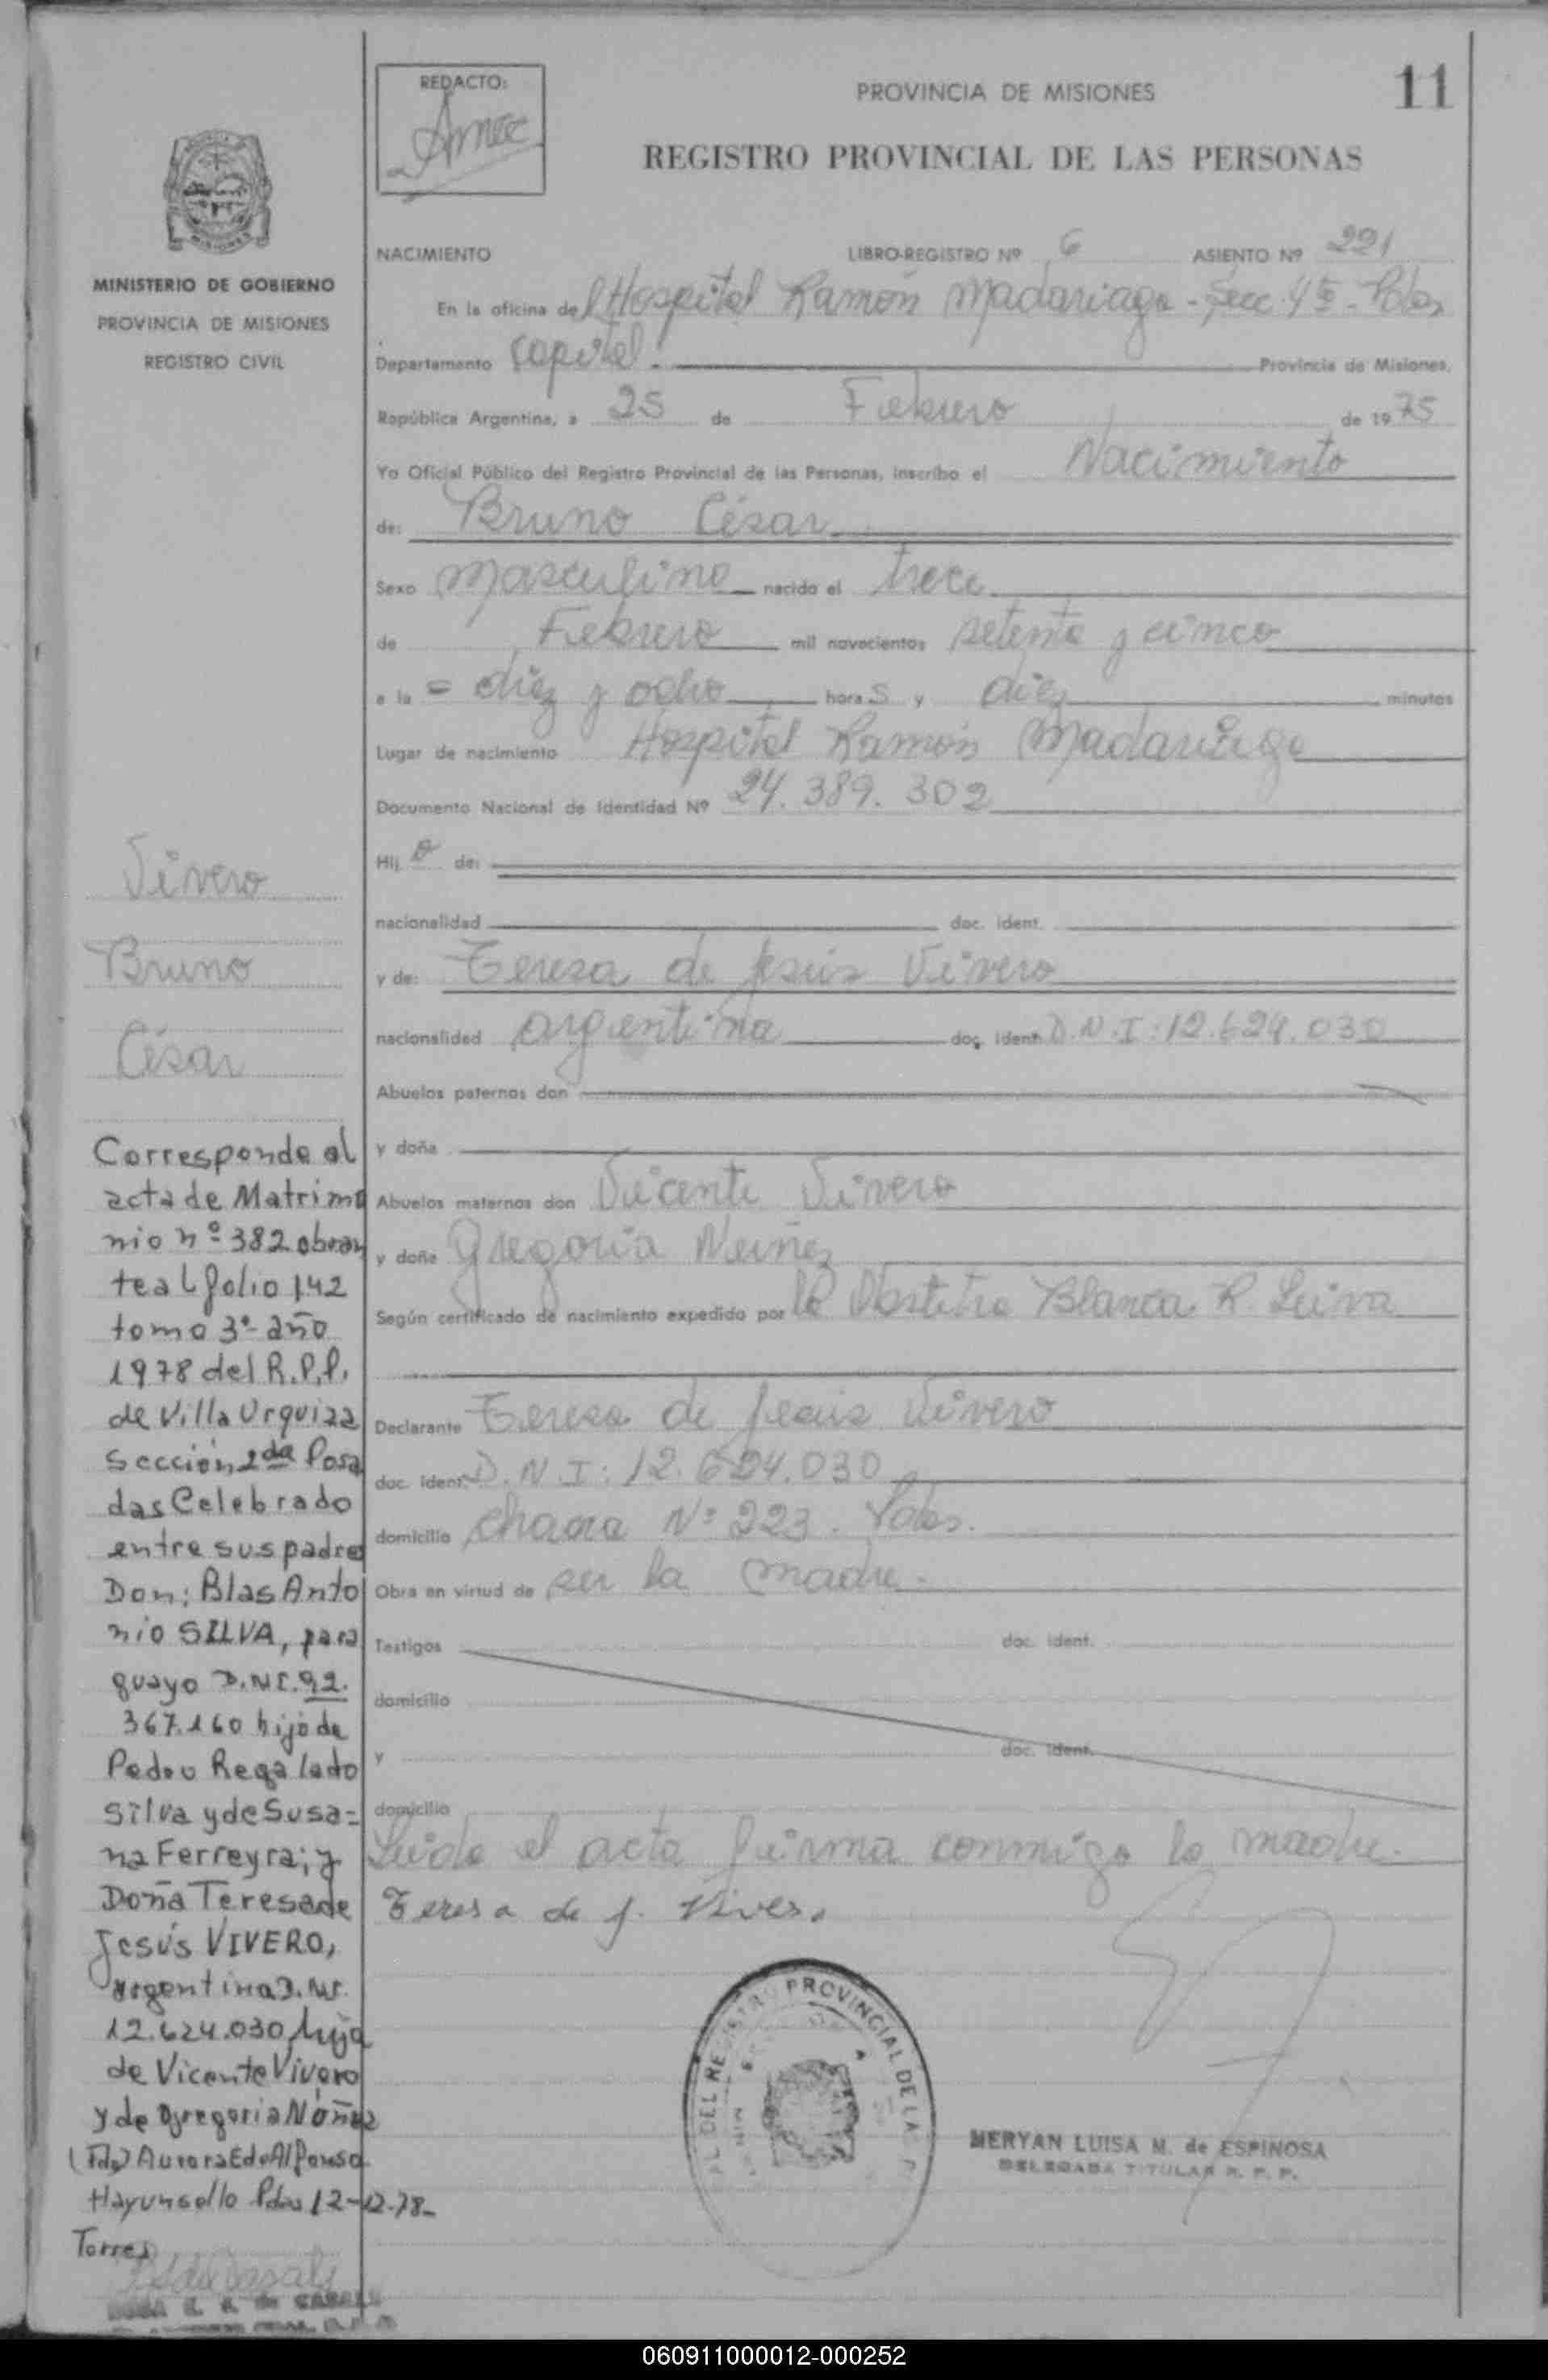 REDACTO:
PROVINCIA DE MISIONES
11
REGISTRO PROVINCIAL DE LAS PERSONAS
MISIONES
MINISTERIO DE GOBIERNO
PROVINCIA DE MISIONES
REGISTRO CIVIL
NACIMIENTO LIBRO-REGISTRO Nº 6 ASIENTO Nº 221
En la oficina del Hospital Ramón Madariaga - Secc. 4ª - Pdas
Departamento Capital. Provincia de Misiones,
República Argentina, a 25 de Febrero de 1975
Yo Oficial Público del Registro Provincial de las Personas, inscribo el Nacimiento
de: Bruno César
Sexo Masculino nacido el trece
de Febrero mil novecientos setenta y cinco
a la = diez y ocho horas y diez minutos
Lugar de nacimiento Hospital Ramón Madariaga
Documento Nacional de Identidad Nº 24.389.302
Hij o de:
nacionalidad doc. ident.
y de: Teresa de Jesús Vivero
nacionalidad argentina doc. ident. D.N.I: 12.624.030
Abuelos paternos don
y doña
Abuelos maternos don Vicente Vivero
y doña Gregoria Núñez
Según certificado de nacimiento expedido por la Obstetra Blanca R. Leiva
Declarante Teresa de Jesús Vivero
doc. ident. D.N.I: 12.624.030
domicilio Chacra Nº 223. Pdas.
Obra en virtud de ser la madre.
Testigos doc. ident.
domicilio
y doc. ident.
domicilio
Leida el acta firma conmigo la madre.
Teresa de J. Vivero
PROVINCIAL DE LA
MERYAN LUISA M. de ESPINOSA
DELEGADA TITULAR R. P. P.
Vivero
Bruno
César
Corresponde al
acta de Matrimo
nio nº 382 obran
te al folio 142
tomo 3º año
1978 del R.P.P.
de Villa Urquiza
Sección 2da Posa
das Celebrado
entre sus padres
Don: Blas Anto
nio SILVA, para
guayo D.NI. 92.
367.160 hijo de
Pedro Regalado
Silva y de Susa=
na Ferreyra; y
Doña Teresa de
Jesús VIVERO,
argentina D.NI.
12.624.030 hija
de Vicente Vivero
y de Gregoria Núñez
(Fdo) Aurora E de Alfonso
Hay un sello Pdas 12-12-78-
Torres
060911000012-000252